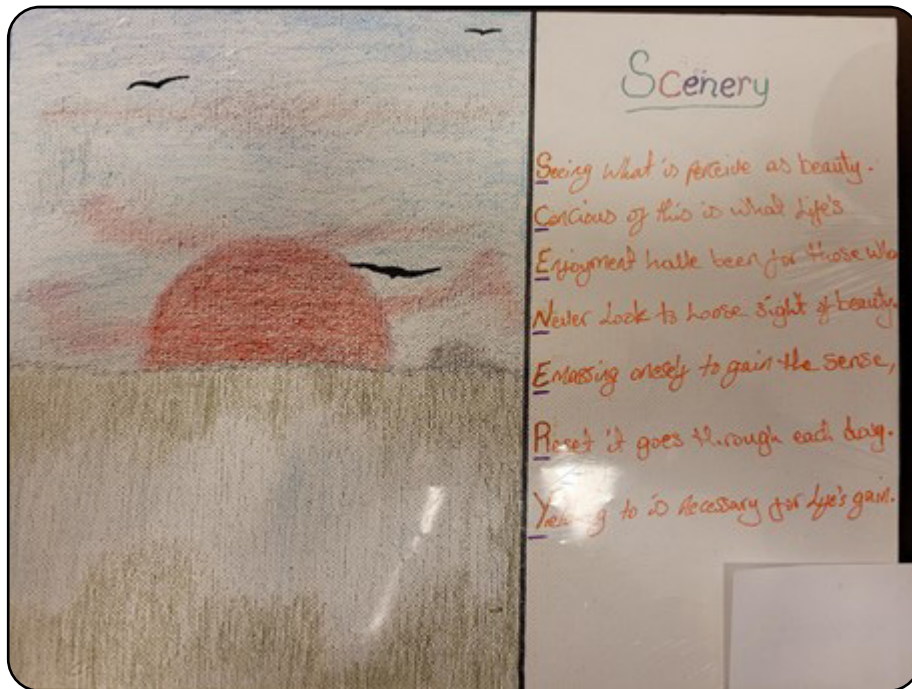 Scenery
Seeing what is perceive as beauty.
Concious of this is what life's
Enjoyment have been for those who
Never Look to Loose sight of beauty
Emassing onesely to gain the sense,
Reset it goes through each day.
to is necessary for Life's gain.